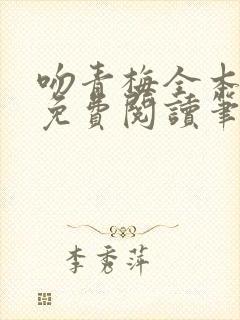 吻青梅全本
免費閱讀筆
李秀萍